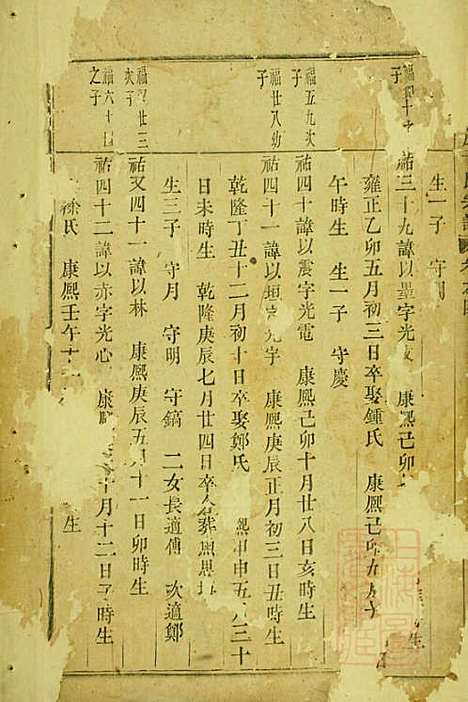 生一子 守
福四十
子
祐三十九諱以墨字光 康熙己卯
生
雍正乙卯五月初三日卒娶鍾氏 康熙己卯九月十
午時生 生一子 守慶
福五九次
子
祐四十諱以震字光電 康熙己卯十月廿八日亥時生
福廿八幼
子
祐四十一諱以垣字光宇 康熙庚辰正月初三日丑時生
乾隆丁丑十二月初十日卒娶鄭氏 熙甲申五月三十
日未時生 乾隆庚辰七月廿四日卒合葬
生三子 守月 守明 守鎬 二女長適傅 次適鄭
福 廿三
次子
祐又四十一諱以林 康熙庚辰五月十一日卯時生
福六十
之子
祐四十二諱以赤字光心 康 十月十二日子時生
徐氏 康熙壬午十 生